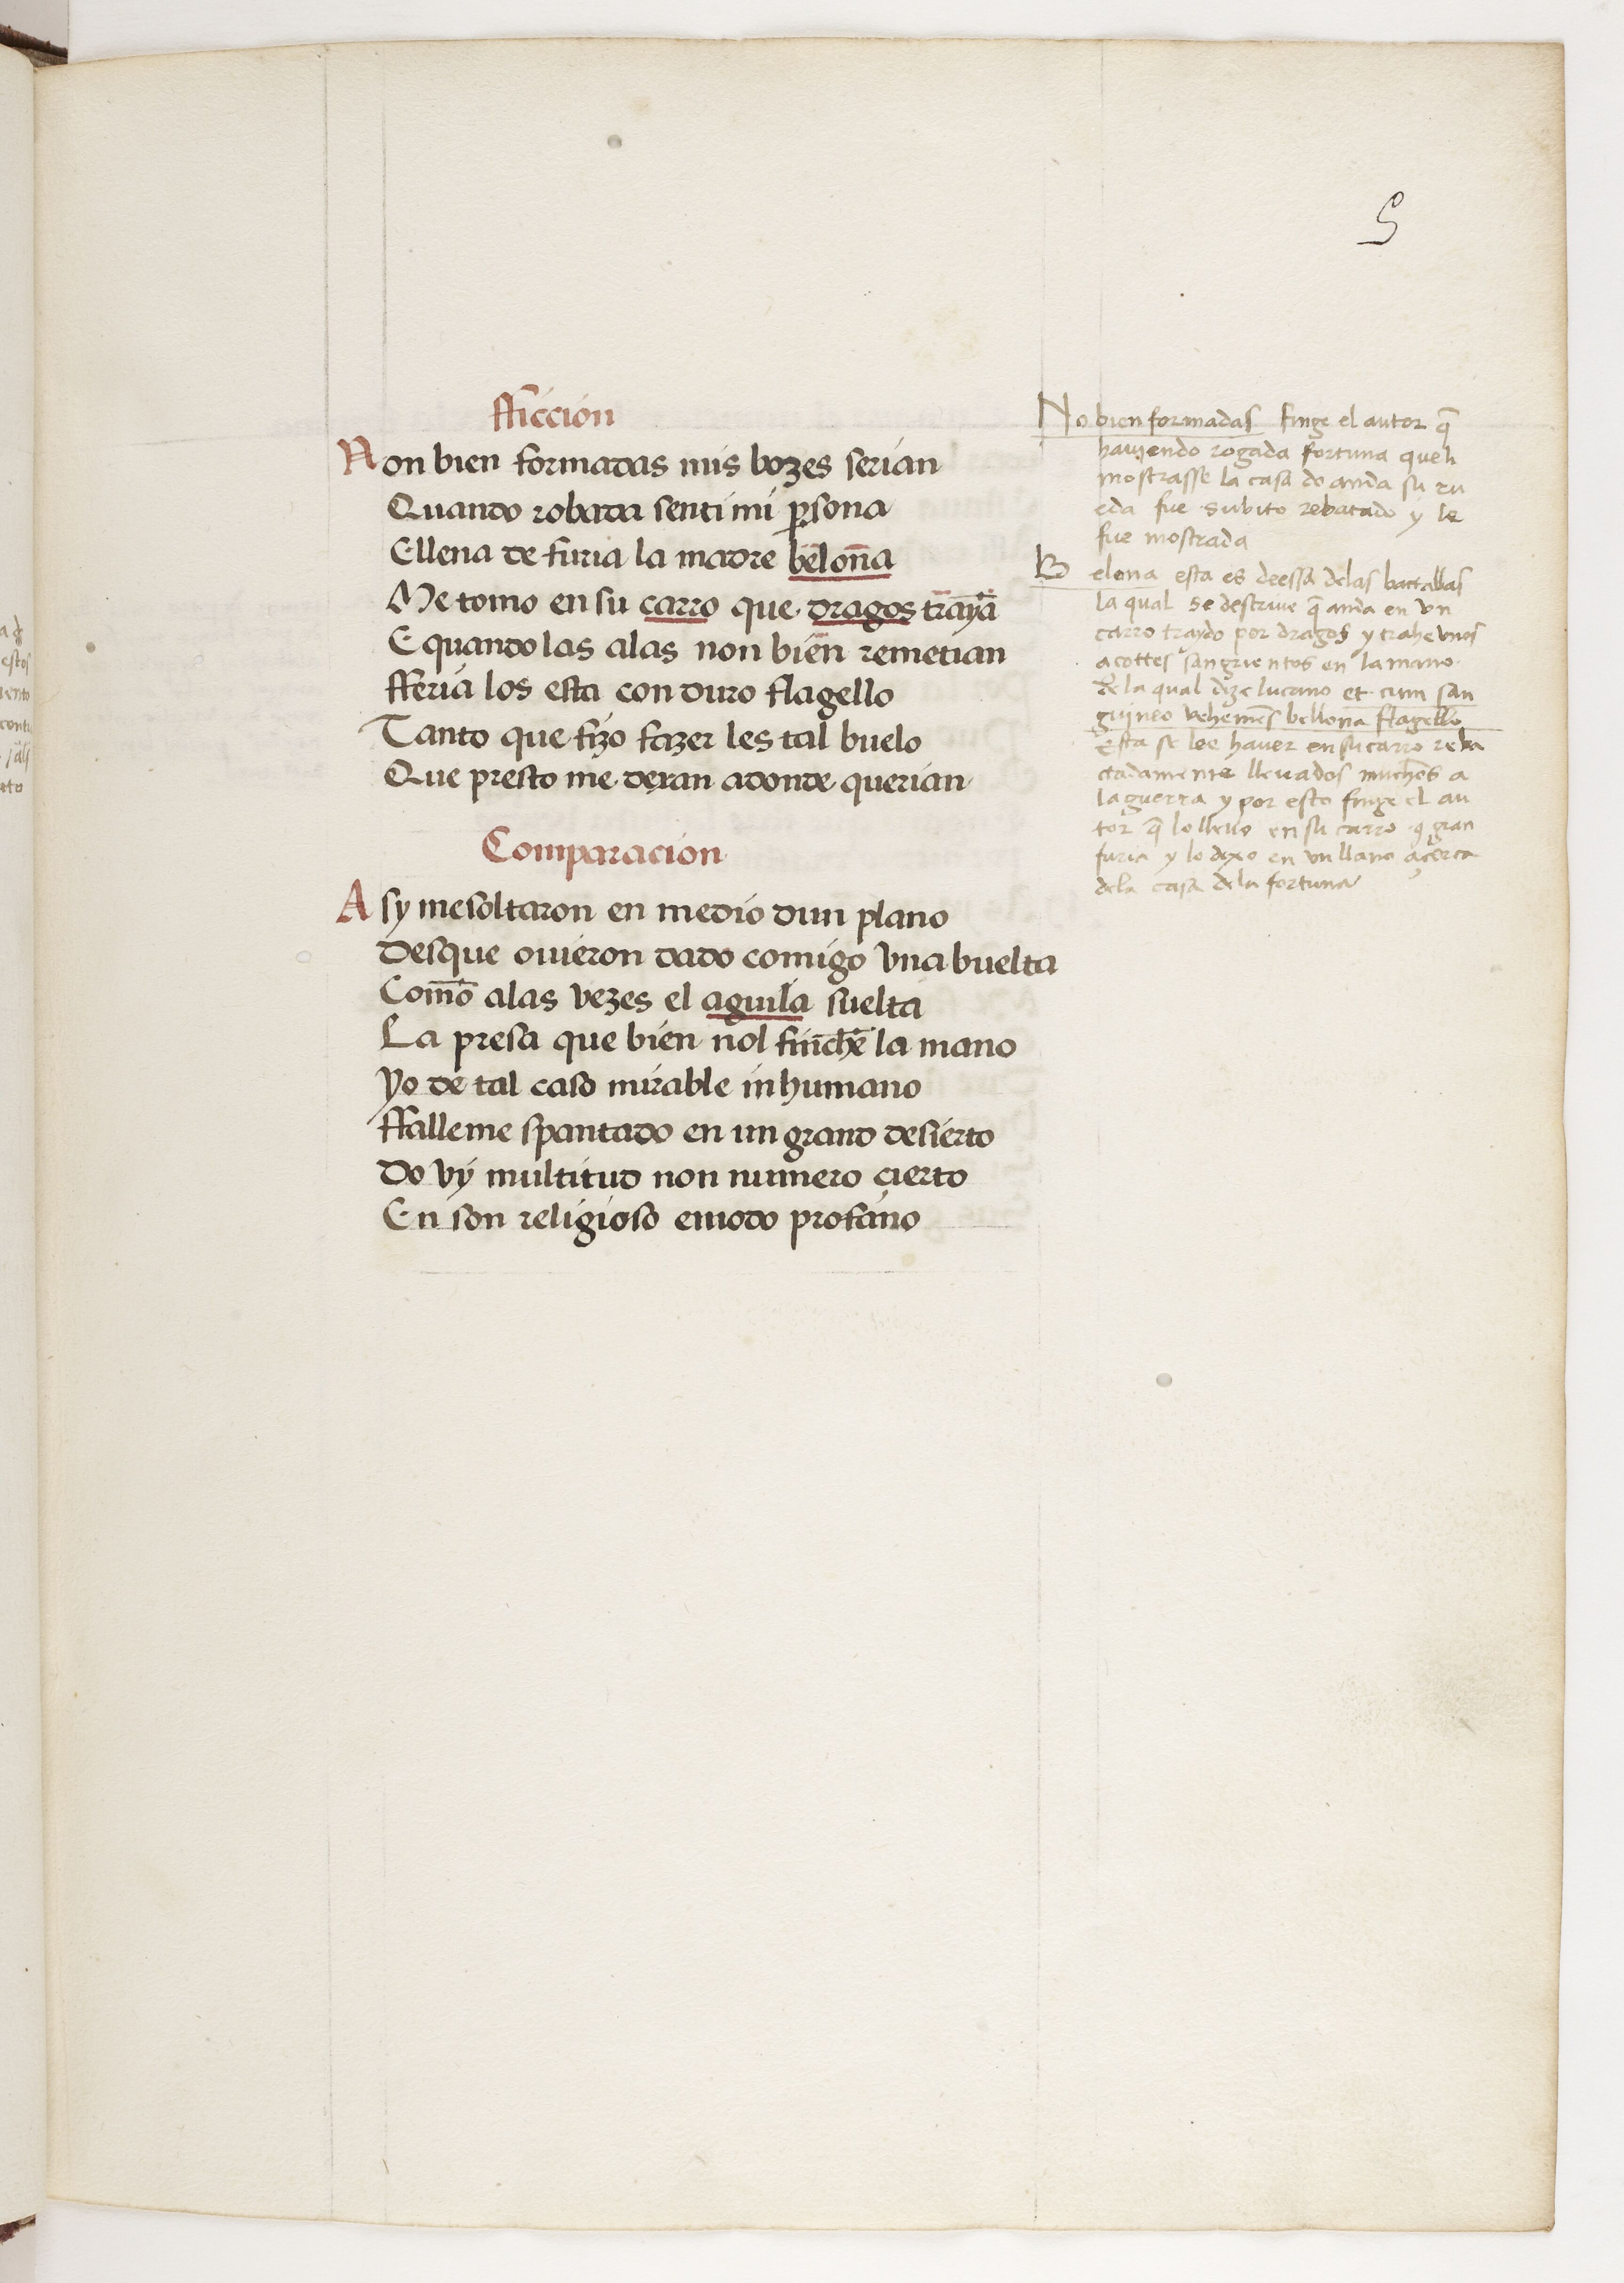 5
fficcion
Non bien formadas mis bozes serian
Quando robada senti mi ꝑsona
Ellena de furia la madre belona
Me tomo en su carro que dragos traya
E quando las alas non bien remetian
fferia los esta con duro flagello
Tanto que fizo fazer les tal buelo
Que presto me dexan adonde querian
Comparacion
Asy me soltaron en medio dun plano
Desque ouieron dado comigo vna buelta
Como alas vezes el aguila suelta
La presa que bien nol finche la mano
Yo de tal caso mirable inhumano
ffalleme spantado en un grand desierto
Do vy multitud non numero çierto
En son religioso emodo profano
No bien formadas finge el autor q̄
hauiendo rogada fortuna queli
mostrasse la casa do anda su ru
eda fue subito rebatado y le
fue mostrada
Belona esta es deessa delas battallas
la qual se descriue q̄ anda en vn
carro traydo por dragos y trahe vnos
acottes sangrientos en la mano
de la qual dize lucano et cum san
guineo vehemēs bellona flagello
Esta se lee hauer en su carro reba
tadamente lleuados muchos a
la guerra y por esto finge el au
tor q̄ lo lleuo en su carro ꝯ gran
furia y lo dexo en vn llano açerca
dela casa dela fortuna